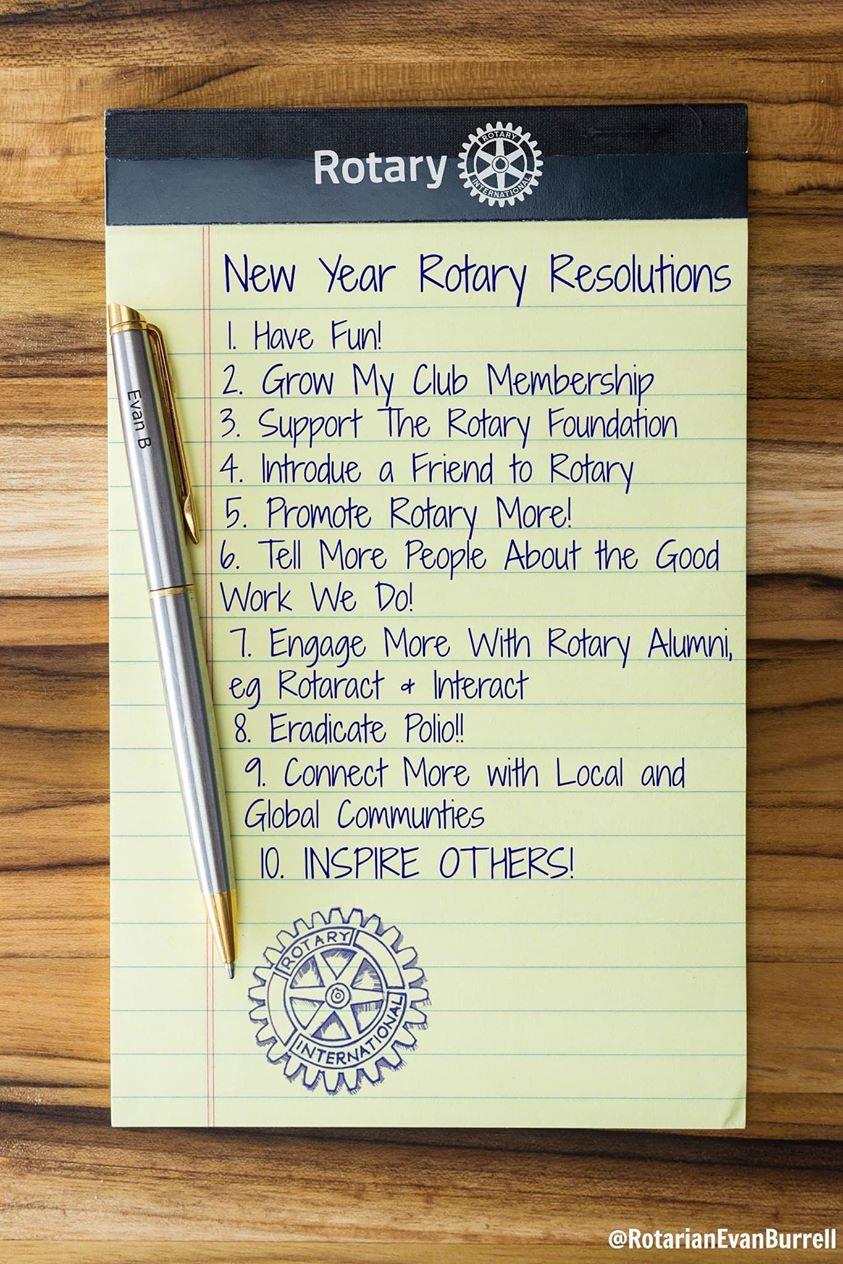 Rotary
ROTARY
INTERNATIONAL
New Year Rotary Resolutions
1. Have Fun!
2. Grow My Club Membership
3. Support The Rotary Foundation
4. Introdue a Friend to Rotary
5. Promote Rotary More!
6. Tell More People About the Good
Work We Do!
7. Engage More With Rotary Alumni,
eg Rotaract & Interact
8. Eradicate Polio!!
9. Connect More with Local and
Global Communties
10. INSPIRE OTHERS!
Evan B
ROTARY
INTERNATIONAL
@RotarianEvanBurrell